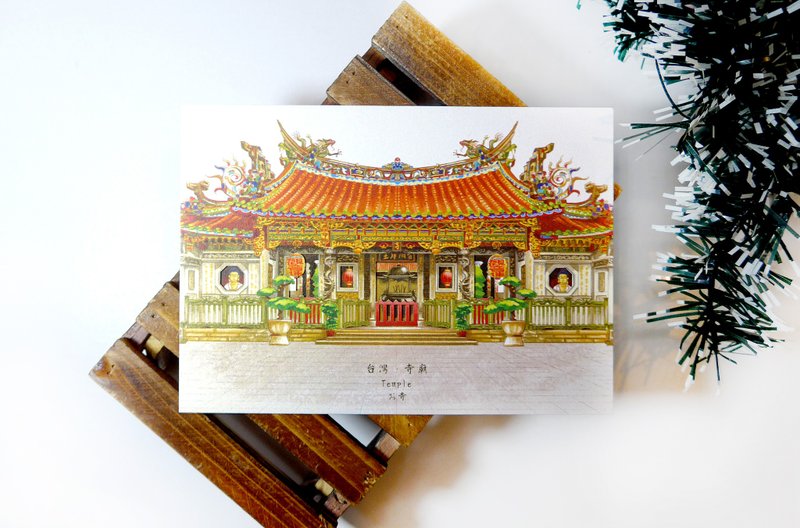 台灣．寺廟
Temple
お寺